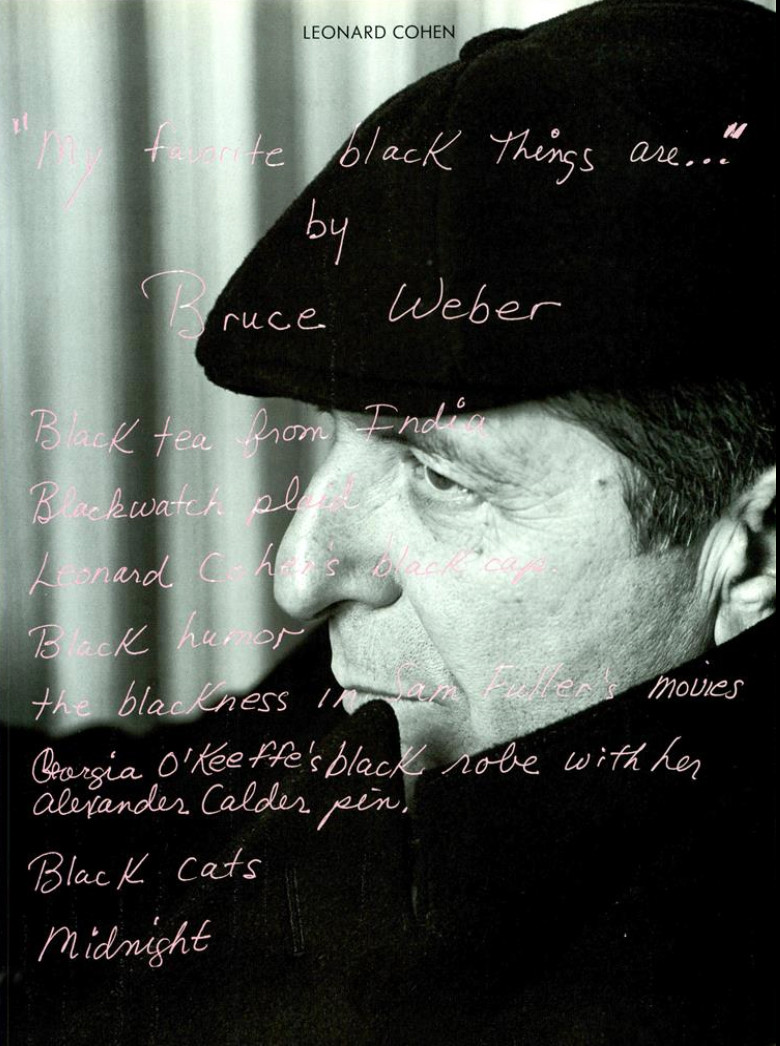 LEONARD COHEN
"My favorite black things are..."
by
Bruce Weber
Black tea from India
Blackwatch plaid
Leonard Cohen's black cap
Black humor
the blackness in Sam Fuller's movies
Georgia O'Keeffe's black robe with her
Alexander Calder pin.
Black cats
Midnight